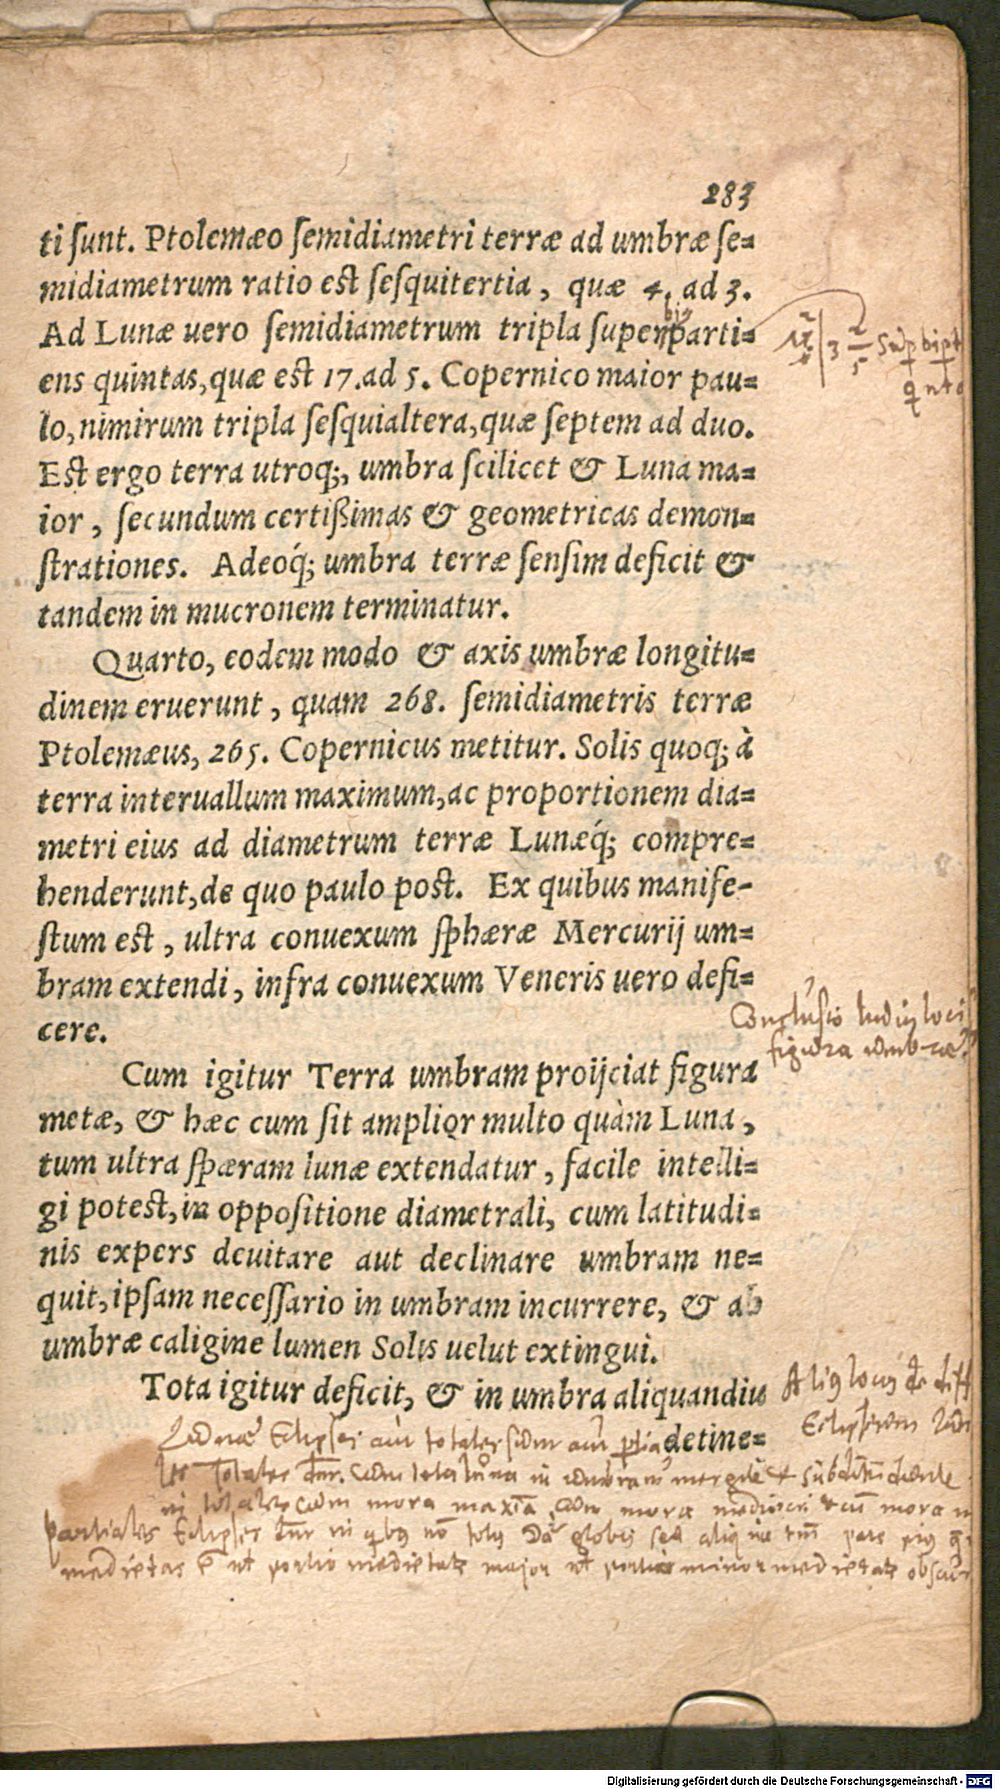 283
ti sunt. Ptolemæo semidiametri terræ ad umbræ se=
midiametrum ratio est sesquitertia, quæ 4. ad 3.
bis
Ad Lunæ uero semidiametrum tripla superparti=
ens quintas, quæ est 17. ad 5. Copernico maior pau=
lo, nimirum tripla sesquialtera, quæ septem ad duo.
Est ergo terra utroq;, umbra scilicet & Luna ma=
ior, secundum certißimas & geometricas demon=
strationes. Adeoq́; umbra terræ sensim deficit &
tandem in mucronem terminatur.
Quarto, eodem modo & axis umbræ longitu=
dinem eruerunt, quam 268. semidiametris terræ
Ptolemæus, 265. Copernicus metitur. Solis quoq; à
terra interuallum maximum, ac proportionem dia=
metri eius ad diametrum terræ Lunæq́; compre=
henderunt, de quo paulo post. Ex quibus manife-
stum est, ultra conuexum sphæræ Mercurij um=
bram extendi, infra conuexum Veneris uero defi=
cere.
Conclusio
figura umbrae
Cum igitur Terra umbram proijciat figura
metæ, & hæc cum sit amplior multo quàm Luna,
tum ultra spæram lunæ extendatur, facile intelli=
gi potest, in oppositione diametrali, cum latitudi=
nis expers deuitare aut declinare umbram ne=
quit, ipsam necessario in umbram incurrere, & ab
umbræ caligine lumen Solis uelut extingui.
Tota igitur deficit, & in umbra aliquandiu
detine=
Lunae Eclipses aut totales sunt aut
totales cum mora maxima cum mora
partiales Eclipses
medietas portio medietate major portio minor medietate
Digitalisierung gefördert durch die Deutsche Forschungsgemeinschaft - DFG